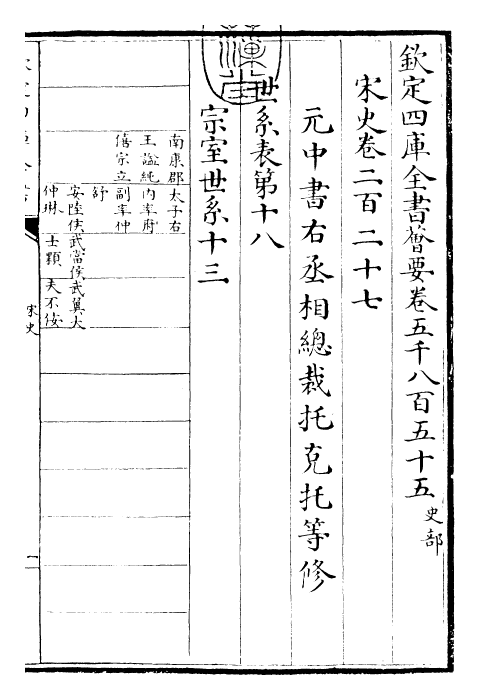 欽定四庫全書薈要卷五千八百五十五 史部
宋史卷二百二十七
元中書右丞相總裁托克托等修
世系表第十八
宗室世系十三
南康郡
王諡純
僖宗立
太子右
内率府
副率仲
舒
安陸侯
仲琳
武當侯
士顆
武翼大
夫不㑊
宋史
一